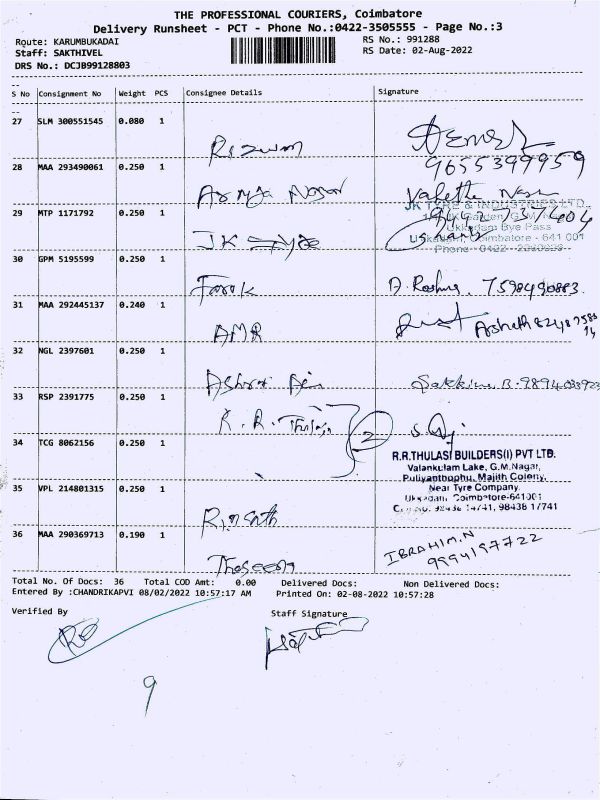 THE PROFESSIONAL COURIERS, Coimbatore
Delivery Runsheet - PCT - Phone No.:0422-3505555 - Page No.:3
Route: KARUMBUKADAI
RS No.: 991288
Staff: SAKTHIVEL
RS Date: 02-Aug-2022
DRS No.: DCJB99128803
S No Consignment No Weight PCS Consignee Details Signature
27 SLM 300551545 0.080 1
Rizwan
9655399959
28 MAA 293490061 0.250 1
Nagar
29 MTP 1171792 0.250 1
JK TYRE & INDUSTRIES LTD.,
Ukkadam Bye Pass
Ukkadam, Coimbatore - 641 001
JK Tyre
30 GPM 5195599 0.250 1
Farok
7598490883
31 MAA 292445137 0.240 1
AMR
32 NGL 2397601 0.250 1
33 RSP 2391775 0.250 1
R. R. Thulasi
2
34 TCG 8062156 0.250 1
R.R.THULASI BUILDERS(I) PVT LTD.
Valankulam Lake, G.M.Nagar,
Puliyanthophu, Majith Colony,
Near Tyre Company,
Ukkadam, Coimbatore-641001
98438 17741
35 VPL 214801315 0.250 1
36 MAA 290369713 0.190 1
IBRAHIM.N
9994197722
Thaseema
Total No. Of Docs: 36 Total COD Amt: 0.00 Delivered Docs: Non Delivered Docs:
Entered By :CHANDRIKAPVI 08/02/2022 10:57:17 AM Printed On: 02-08-2022 10:57:28
Verified By Staff Signature
9